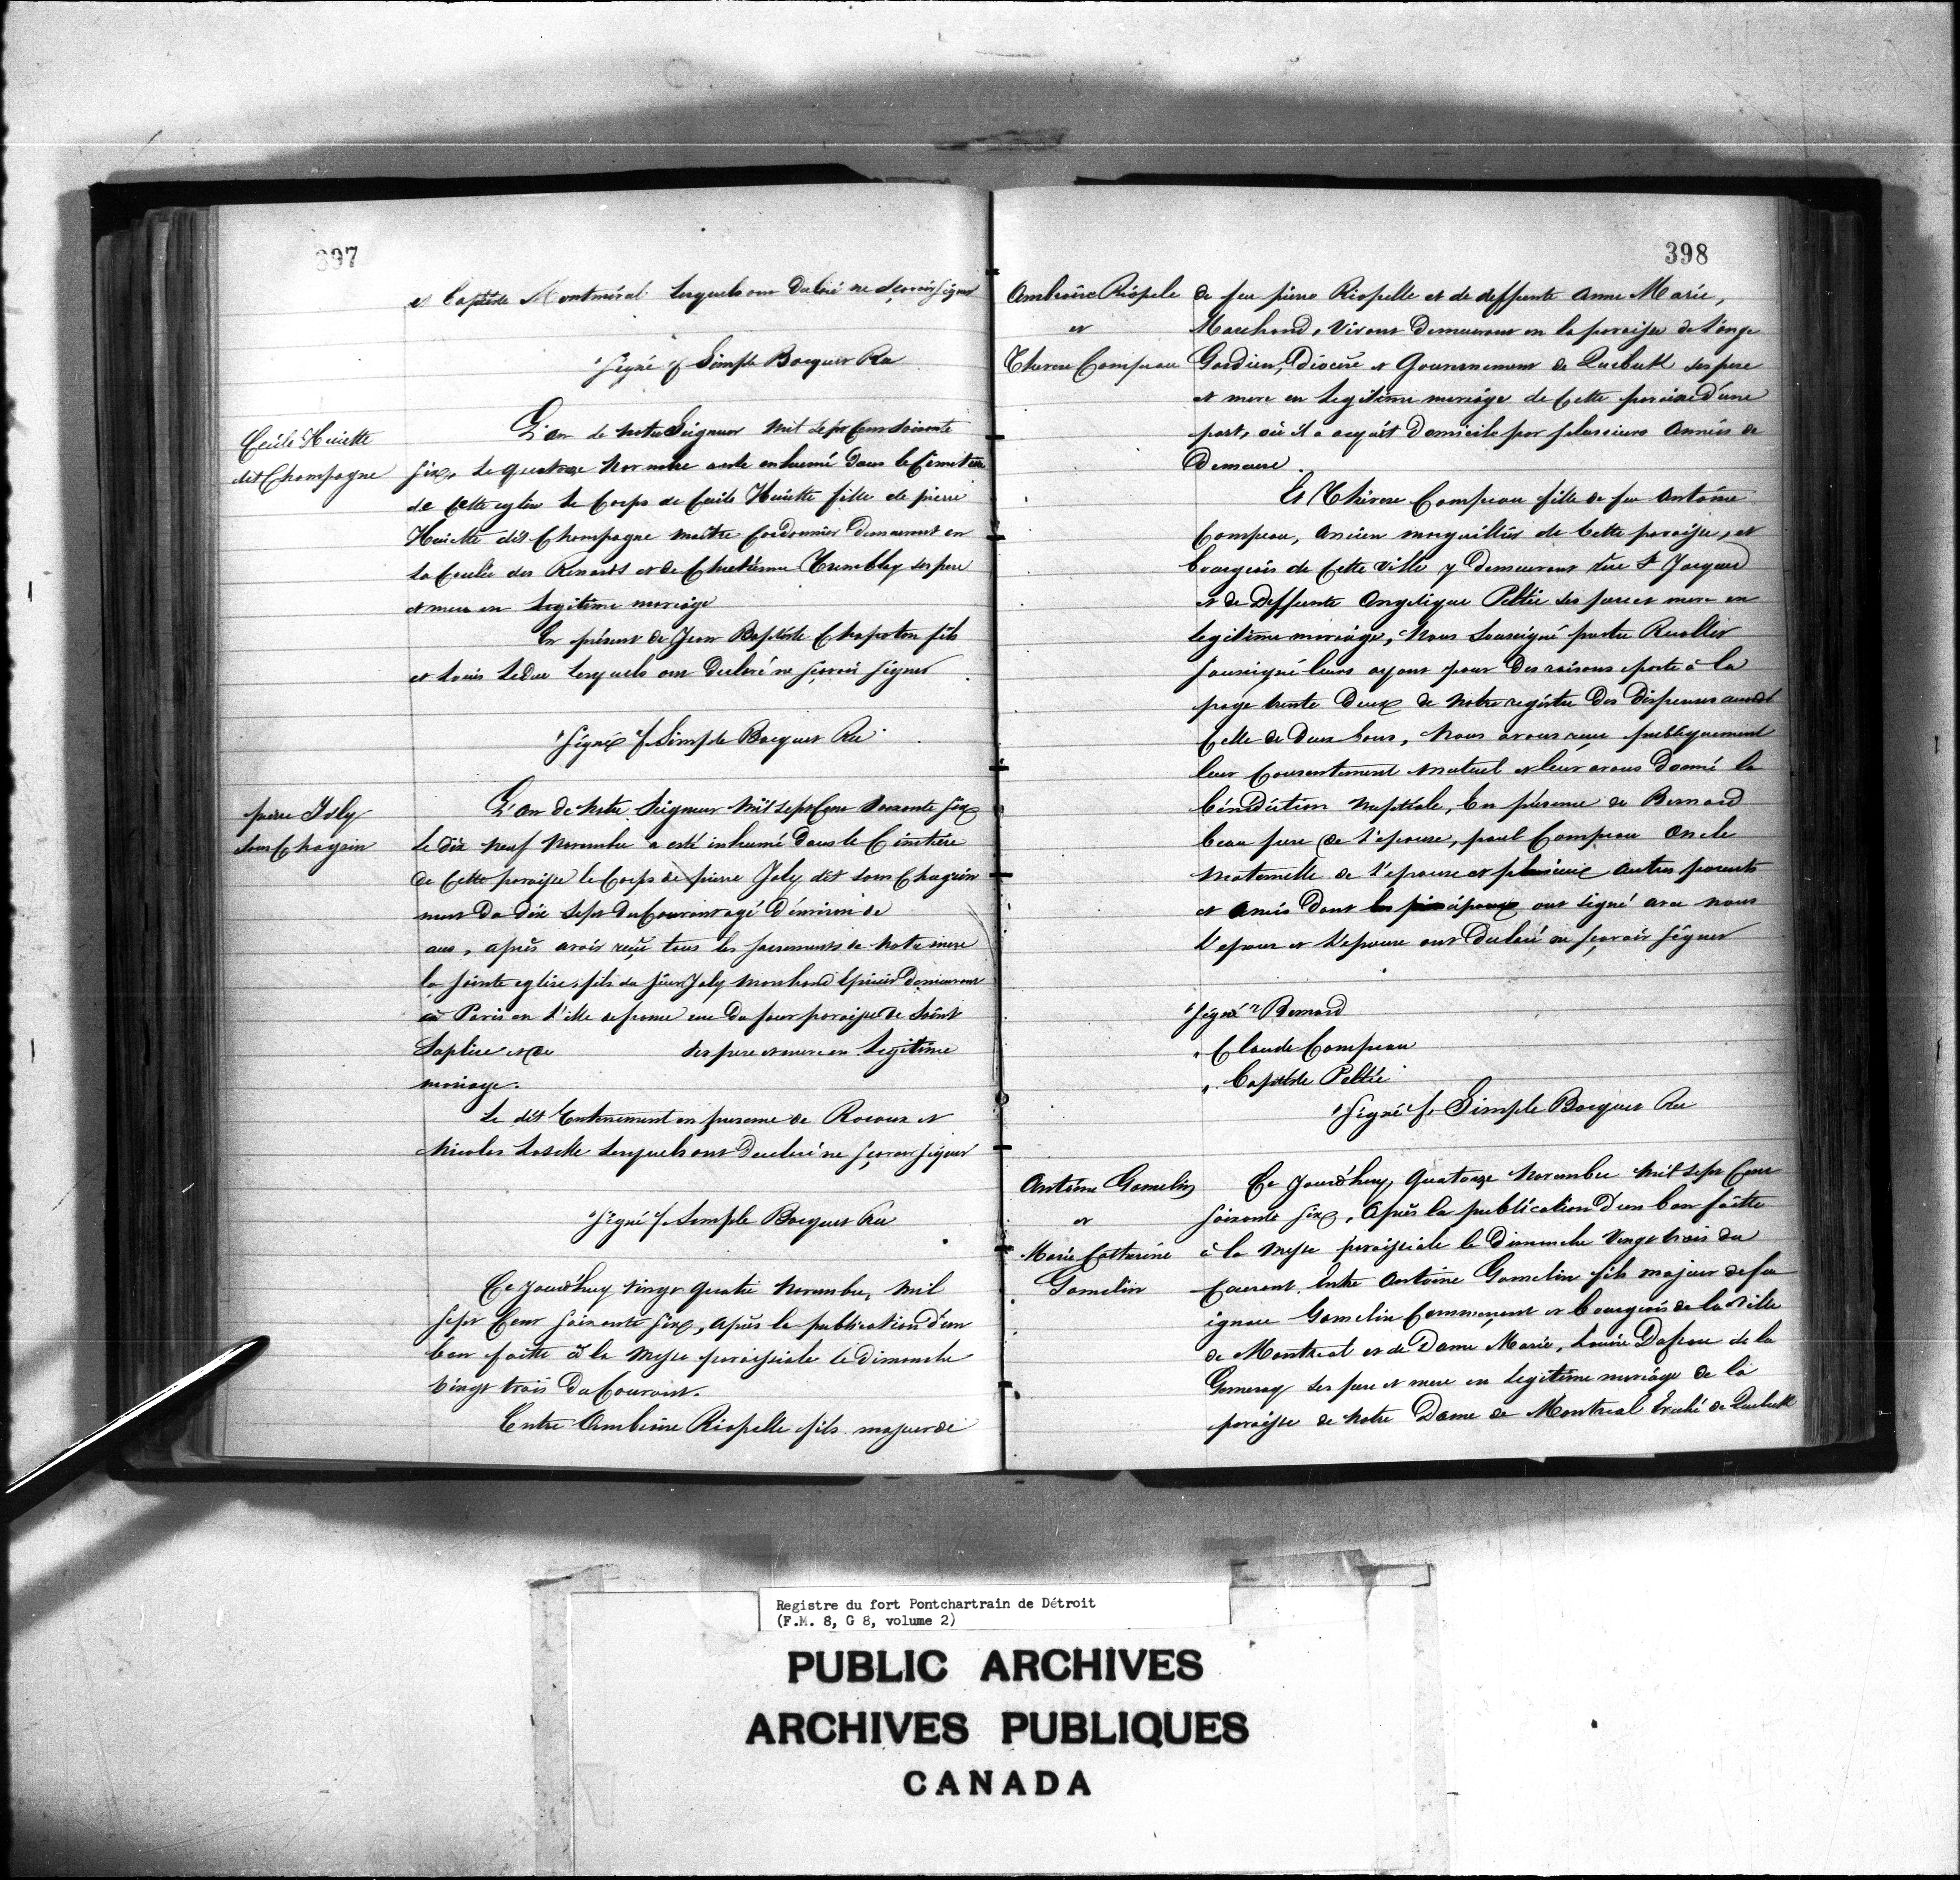 397
et Baptiste Montmirel lesquels ont declaré ne sçavoir signer
"Signé f. Simple Bocquet Rec
Cecile Huiette
dit Champagne
L'an de notre Seigneur mil sept Cens Soixante
six, le quatorze Novembre a esté enhumé dans le Cimetiere
de Cette eglise le Corps de Cecile Huiette fille de pierre
Huiette dit Champagne maître Cordonnier demeurant en
la Coulée des Renards et de Chretienne Trembley ses pere
et mere en legitime mariage
En présent de Jean Baptiste Chapoton fils
et Louis Leduc lesquels ont declaré ne sçavoir signer
"Signé f. Simple Bocquet Rec
pierre Joly
sans Chagrin
L'an de Notre Seigneur mil sept Cens soixante six
le dix neuf Novembre a esté inhumé dans le Cimetiere
de Cette paroisse le Corps de pierre Joly dit sans Chagrin
mort du dix sept du Courant agé d'environ de
ans, après avoir reçu tous les sacrements de notre mere
la sainte eglise, fils du sieur Joly marchand Epicier demeurant
à Paris en l'ille de france rue du four paroisse de Saint
Suplice et de ses pere et mere en legitime
mariage.
Le dit Enterrement en presence de Rocoux et
Nicolas Laselle lesquels ont declaré ne sçavoir signer
"Signé f. Simple Bocquet Rec
Ce jourd'huy vingt quatre Novembre, mil
sept Cent soixante six, après la publication d'un
ban faitte à la Messe paroissiale le dimanche
vingt trois du Courant.
Entre Ambroise Riopelle fils majeur de
398
Ambroise Riopele
et
Therese Campeau
de feu pierre Riopelle et de deffunte Anne Marie,
Marchand, vivant demeurant en la paroisse de l'ange
Gardien, Diocèse et Gouvernement de Quebeck ses pere
et mere en legitime mariage de Cette paroisse d'une
part, où il a acquit domicile par plusieurs Années de
demeure.
Et Thérese Campeau fille de feu Antoine
Campeau, Ancien marguillier de Cette paroisse, et
bourgeois de Cette ville y demeurant rüe St Jacques
et de Deffunte Angelique Peltié ses pere et mere en
legitime mariage, Nous Soussigné prètre Recollet
soussigné leurs ayant pour des raisons porté à la
page trente deux de notre registre des dispenses accordé
Celle de deux bans, Nous avons reçu publiquement
leur Consentement mutuel et leur avons donné la
bénédiction Nuptiale, En présence de Bernard
beau pere de l'épouse, paul Campeau Oncle
maternelle de l'épouse et plusieurs autres parents
et Amis dont les principaux ont signé avec nous
l'epoux et l'epouse ont declaré ne sçavoir signer
"Signé" Bernard
" Claude Campeau
" Baptiste Peltié
"Signé f. Simple Bocquet Rec
Antoine Gamelin
et
Marie Catherine
Gamelin
Ce jourd'huy, quatorze Novembre mil sept Cent
soixante six, Après la publication d'un ban faitte
à la Messe paroissiale le dimanche vingt trois du
Courant. Entre Antoine Gamelin fils majeur de feu
ignace Gamelin Commerçant et bourgeois de la ville
de Montreal et de Dame Marie, Louise Dufrou de la
Gemeray ses pere et mere en legitime mariage de la
paroisse de Notre Dame de Montreal Evêché de Quebeck
Registre du fort Pontchartrain de Détroit
(F.M. 8, G 8, volume 2)
PUBLIC ARCHIVES
ARCHIVES PUBLIQUES
CANADA